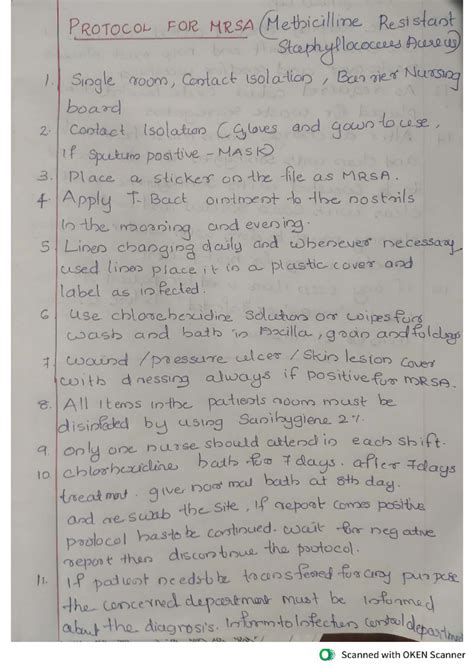 PROTOCOL FOR MRSA (Methicilline Resistant
Staephyllococcees Aureus)
1. Single room, Contact isolation, Barrier Nursing
board
2. Contact Isolation (Gloves and gown to use,
if sputum positive - MASK)
3. Place a sticker on the file as MRSA.
4. Apply T. Bact ointment to the nostrils
In the morning and evening.
5. Linen changing daily and whenever necessary
used linen place it in a plastic cover and
label as infected.
6. use chlorehexidine solution or wipes for
wash and bath in Axcilla, groin and folds
7. waind /pressure ulcer / skin lesion cover
with dressing always if positive for MRSA.
8. All Items in the patients room must be
disinfected by using Sanihygiene 2%.
9. only one nurse should attend in each shift.
10. chlorhexidine bath for 7 days. after 7 days
treatment. give normal bath at 8th day.
and re swab the site, If report comes positive
protocol has to be continued. wait for negative
report then discontinue the protocol.
11. If patient needs to be transferred for any purpose
the concerned department must be informed
about the diagnosis. Inform to Infection control department
Scanned with OKEN Scanner